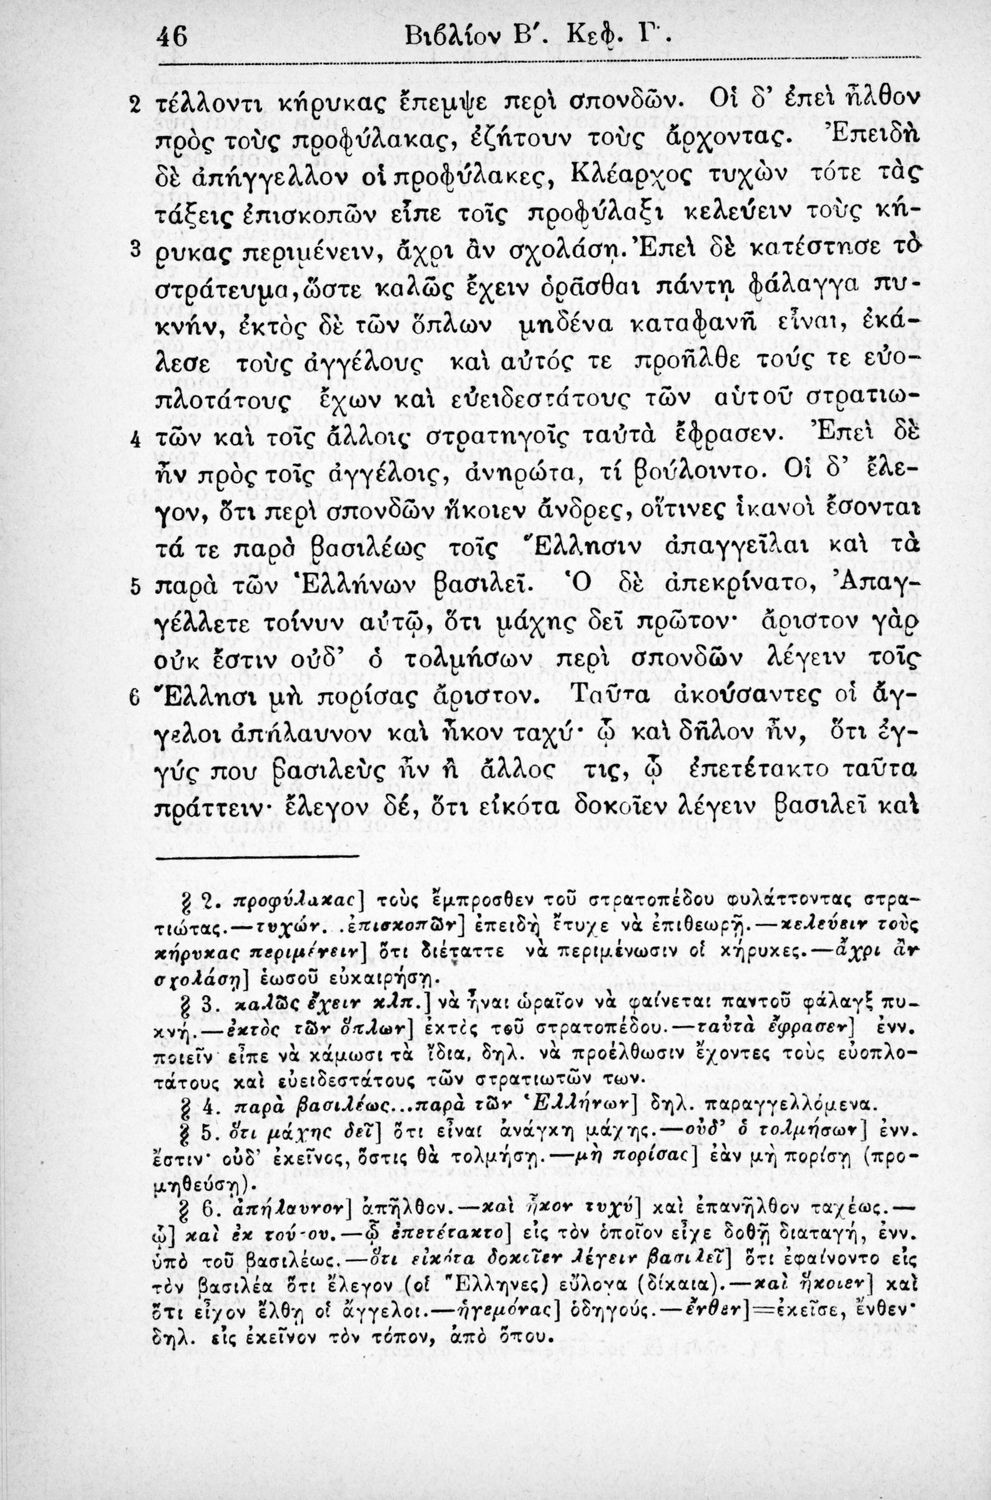 46 Βιβλίον Β'. Κεφ. Γ'.
2 τέλλοντι κήρυκας ἔπεμψε περὶ σπονδῶν. Οἱ δ' ἐπεὶ ἦλθον
πρὸς τοὺς προφύλακας, ἐζήτουν τοὺς ἄρχοντας. Ἐπειδὴ
δὲ ἀπήγγελλον οἱ προφύλακες, Κλέαρχος τυχὼν τότε τὰς
τάξεις ἐπισκοπῶν εἶπε τοῖς προφύλαξι κελεύειν τοὺς κή-
3 ρυκας περιμένειν, ἄχρι ἂν σχολάσῃ. Ἐπεὶ δὲ κατέστησε τὸ
στράτευμα, ὥστε καλῶς ἔχειν ὁρᾶσθαι πάντῃ φάλαγγα πυ-
κνήν, ἐκτὸς δὲ τῶν ὅπλων μηδένα καταφανῆ εἶναι, ἐκά-
λεσε τοὺς ἀγγέλους καὶ αὐτός τε προῆλθε τούς τε εὐο-
πλοτάτους ἔχων καὶ εὐειδεστάτους τῶν αὑτοῦ στρατιω-
4 τῶν καὶ τοῖς ἄλλοις στρατηγοῖς ταὐτὰ ἔφρασεν. Ἐπεὶ δὲ
ἦν πρὸς τοῖς ἀγγέλοις, ἀνηρώτα, τί βούλοιντο. Οἱ δ' ἔλε-
γον, ὅτι περὶ σπονδῶν ἥκοιεν ἄνδρες, οἵτινες ἱκανοὶ ἔσονται
τά τε παρὰ βασιλέως τοῖς Ἕλλησιν ἀπαγγεῖλαι καὶ τὰ
5 παρὰ τῶν Ἑλλήνων βασιλεῖ. Ὁ δὲ ἀπεκρίνατο, Ἀπαγ-
γέλλετε τοίνυν αὐτῷ, ὅτι μάχης δεῖ πρῶτον· ἄριστον γὰρ
οὐκ ἔστιν οὐδ' ὁ τολμήσων περὶ σπονδῶν λέγειν τοῖς
6 Ἕλλησι μὴ πορίσας ἄριστον. Ταῦτα ἀκούσαντες οἱ ἄγ-
γελοι ἀπήλαυνον καὶ ἧκον ταχύ· ᾧ καὶ δῆλον ἦν, ὅτι ἐγ-
γύς που βασιλεὺς ἦν ἢ ἄλλος τις, ᾧ ἐπετέτακτο ταῦτα
πράττειν· ἔλεγον δέ, ὅτι εἰκότα δοκοῖεν λέγειν βασιλεῖ καὶ
§ 2. προφύλακας] τοὺς ἔμπροσθεν τοῦ στρατοπέδου φυλάττοντας στρα-
τιώτας.—τυχών. .ἐπισκοπῶν] ἐπειδὴ ἔτυχε νὰ ἐπιθεωρῇ.—κελεύειν τοὺς
κήρυκας περιμένειν] ὅτι διέταττε νὰ περιμένωσιν οἱ κήρυκες.—ἄχρι ἂν
σχολάσῃ] ἑωσοῦ εὐκαιρήσῃ.
§ 3. καλῶς ἔχειν κλπ.] νὰ ἦναι ὡραῖον νὰ φαίνεται παντοῦ φάλαγξ πυ-
κνή.—ἐκτὸς τῶν ὅπλων] ἐκτὸς τοῦ στρατοπέδου.—ταὐτὰ ἔφρασεν] ἐνν.
ποιεῖν· εἶπε νὰ κάμωσι τὰ ἴδια, δηλ. νὰ προέλθωσιν ἔχοντες τοὺς εὐοπλο-
τάτους καὶ εὐειδεστάτους τῶν στρατιωτῶν των.
§ 4. παρὰ βασιλέως...παρὰ τῶν Ἑλλήνων] δηλ. παραγγελλόμενα.
§ 5. ὅτι μάχης δεῖ] ὅτι εἶναι ἀνάγκη μάχης.—οὐδ' ὁ τολμήσων] ἐνν.
ἔστιν· οὐδ' ἐκεῖνος, ὅστις θὰ τολμήσῃ.—μὴ πορίσας] ἐὰν μὴ πορίσῃ (προ-
μηθεύσῃ).
§ 6. ἀπήλαυνον] ἀπῆλθον.—καὶ ἧκον ταχύ] καὶ ἐπανῆλθον ταχέως.—
ᾧ] καὶ ἐκ τού-ου.—ᾧ ἐπετέτακτο] εἰς τὸν ὁποῖον εἶχε δοθῆ διαταγή, ἐνν.
ὑπὸ τοῦ βασιλέως.—ὅτι εἰκότα δοκοῖεν λέγειν βασιλεῖ] ὅτι ἐφαίνοντο εἰς
τὸν βασιλέα ὅτι ἔλεγον (οἱ Ἕλληνες) εὔλογα (δίκαια).—καὶ ἥκοιεν] καὶ
ὅτι εἶχον ἔλθῃ οἱ ἄγγελοι.—ἡγεμόνας] ὁδηγούς.—ἔνθεν]=ἐκεῖσε, ἔνθεν·
δηλ. εἰς ἐκεῖνον τὸν τόπον, ἀπὸ ὅπου.